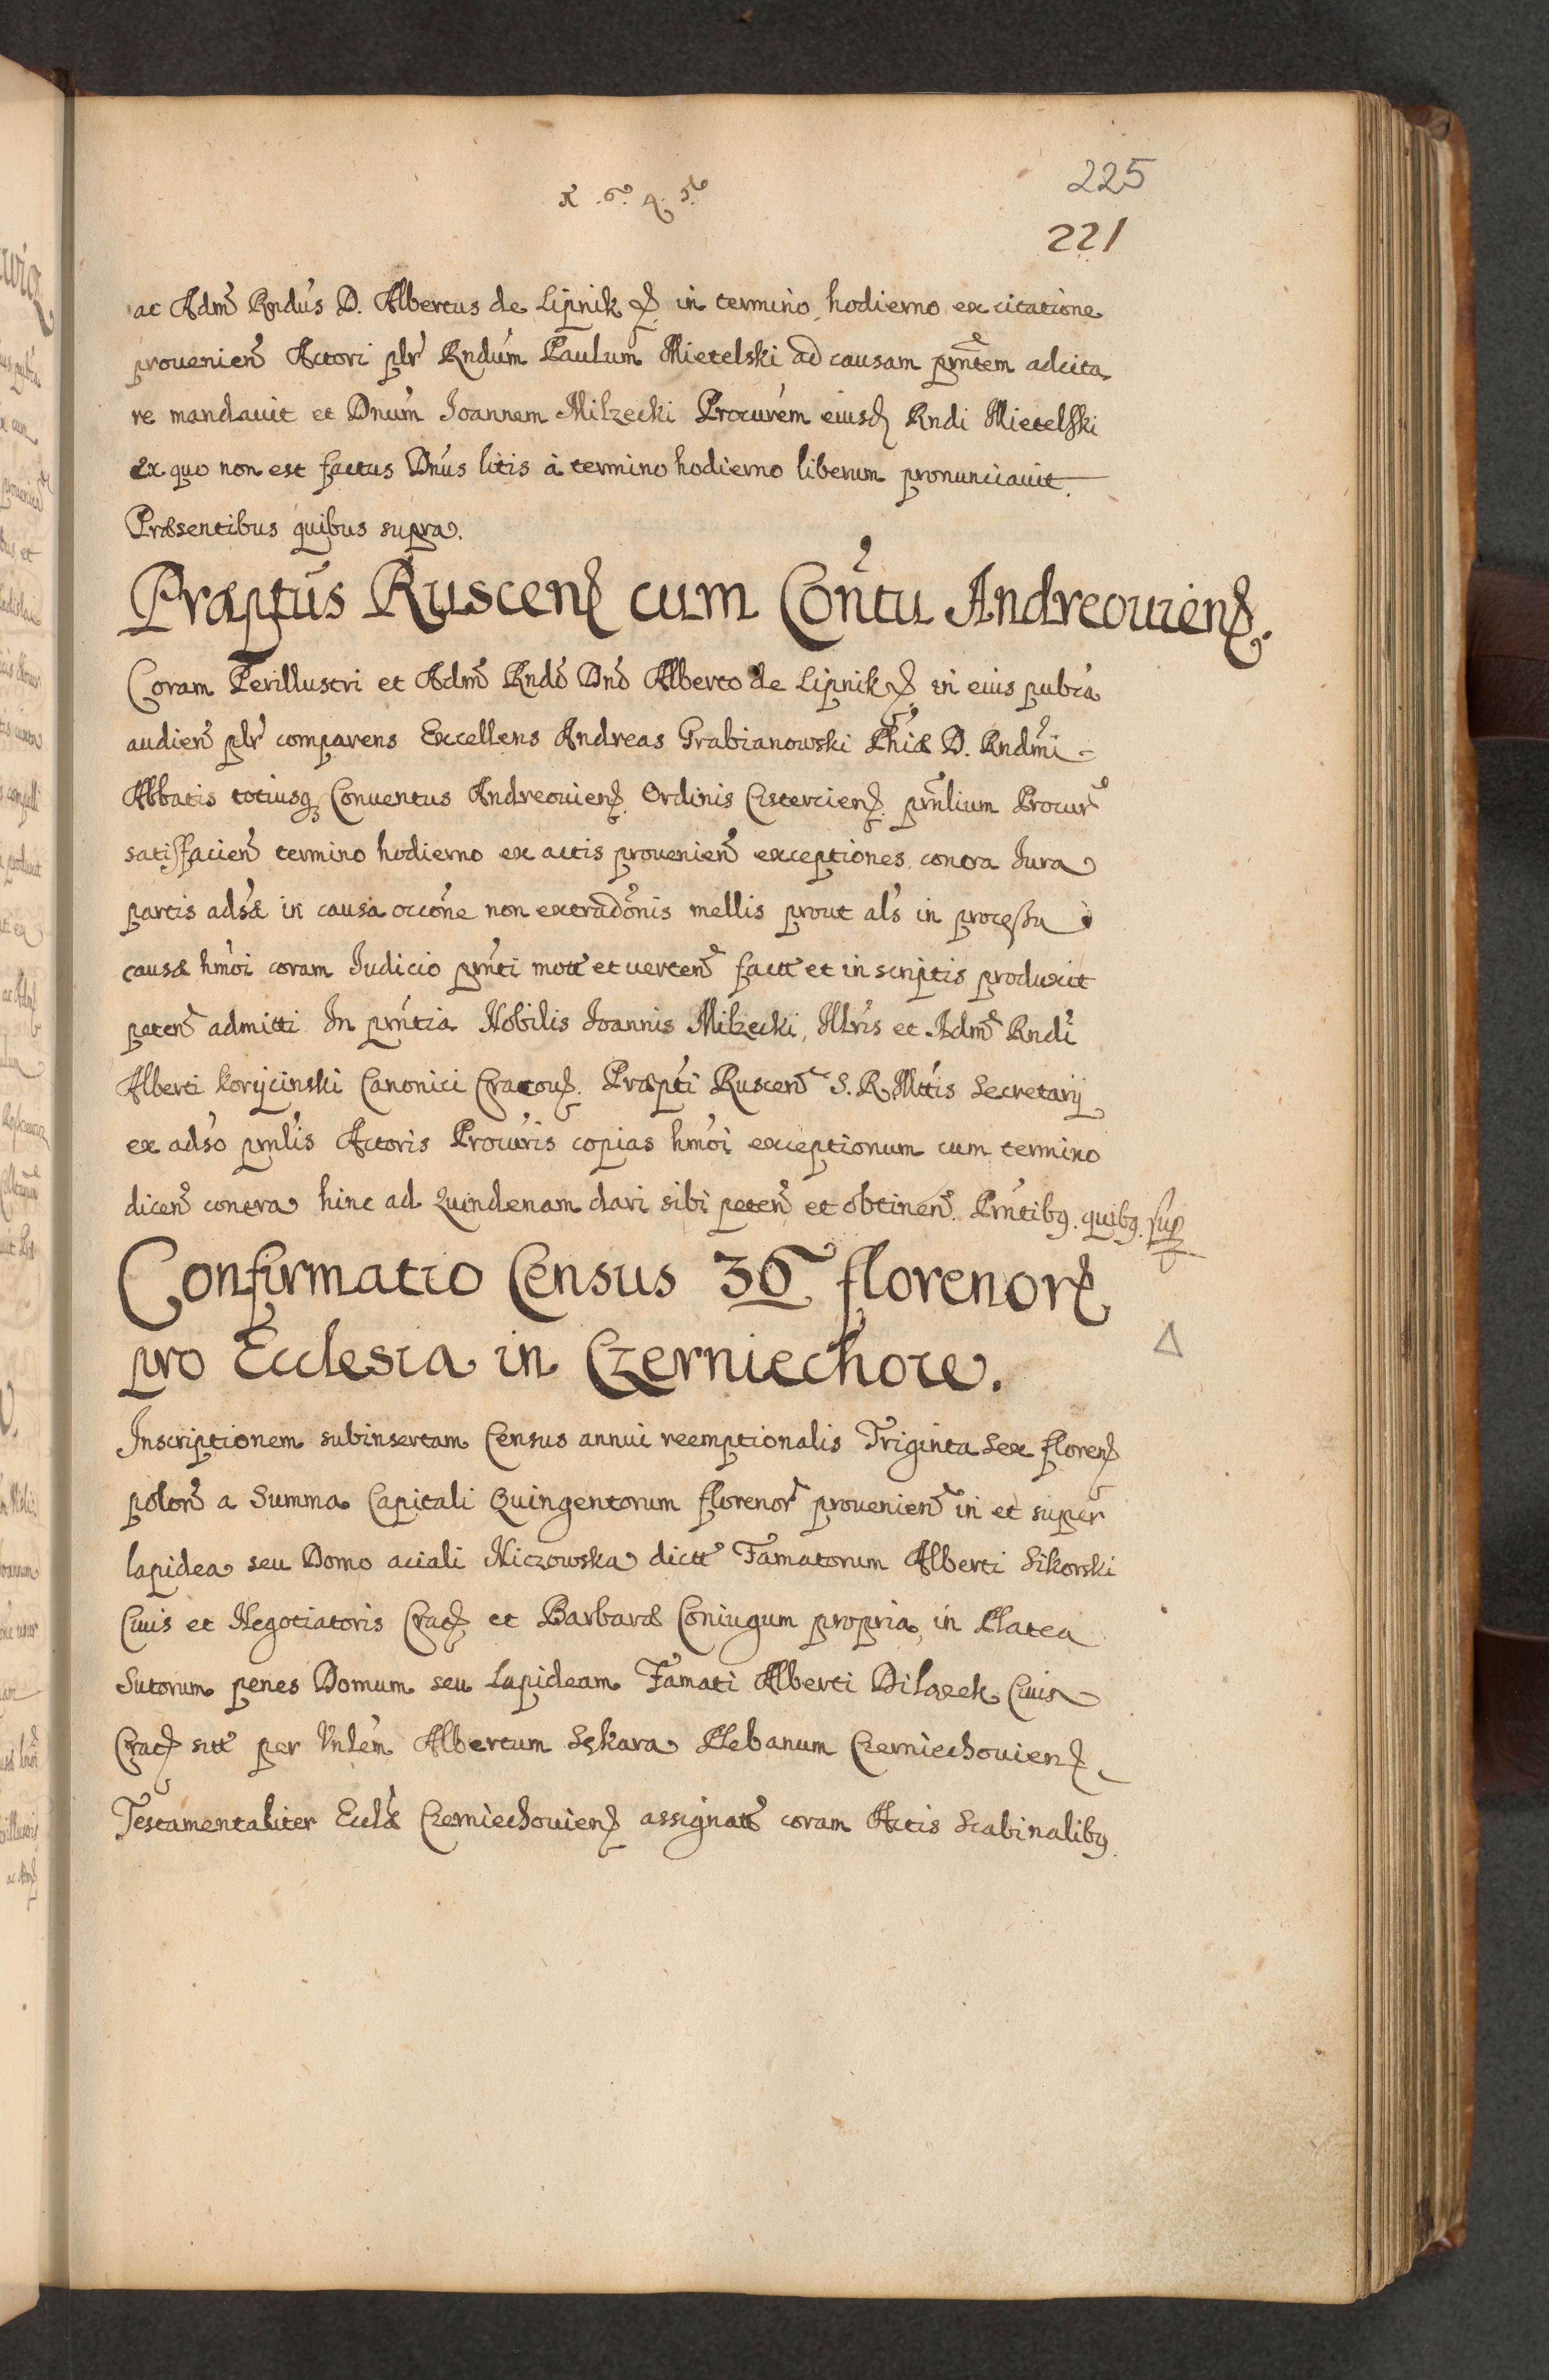 225
221
ac Adm Rndus D. Albertus de Lipnik in termino hodierno ex citatione
prouenien Actori plr Rndum Paulum Mietelski ad causam prntem adcita
re mandauit et Dnum Joannem Milzecki Procurem eiusd Rndi Mietelski
ex quo non est factus Dnus litis à termino hodierno liberum pronunciauit.
Præsentibus quibus supra.
Præptus Ruscen cum Contu Andreouien.
Coram Perillustri et Adm Rndo Dno Alberto de Lipnik in eius publca
audien plr comparens Excellens Andreas Grabianowski Phiæ D. Rndmi
Abbatis totiusq Conuentus Andreouien. Ordinis Cistercien. prnlium Procur
satisfacien termino hodierno ex actis prouenien exceptiones contra Iura
partis adsæ in causa occone non extradonis mellis prout als in processu
causæ hmoi coram Iudicio prnti mott et uerten fact et in scriptis produxit
peten admitti In prntia Nobilis Joannis Milzecki, Illris et Adm Rndi
Alberti Korycinski Canonici Cracou. Præpti Ruscen S. R. Mttis Secretarij
ex adso prnlis Actoris Procuris copias hmoi exceptionum cum termino
dicen contra hinc ad Quindenam dari sibi peten et obtinen. Prntibq. quibq. sup
Confirmatio Census 36 florenor
pro Ecclesia in Czerniechow.
Inscriptionem subinsertam Census annui reemptionalis Triginta Sex floren
polon a Summa Capitali Quingentorum florenor prouenien in et super
lapidea seu Domo aciali Niczowska dictt Famatorum Alberti Sikorski
Ciuis et Negotiatoris Crac et Barbaræ Coniugum propria, in Platea
Sutorum penes Domum seu Lapideam Famati Alberti Ciuis
Crac sitt per Vnlem Albertum Sękara Plebanum Czerniechouien
Testamentaliter Ecclæ Czerniechouien assignatt coram Actis Scabinalibq